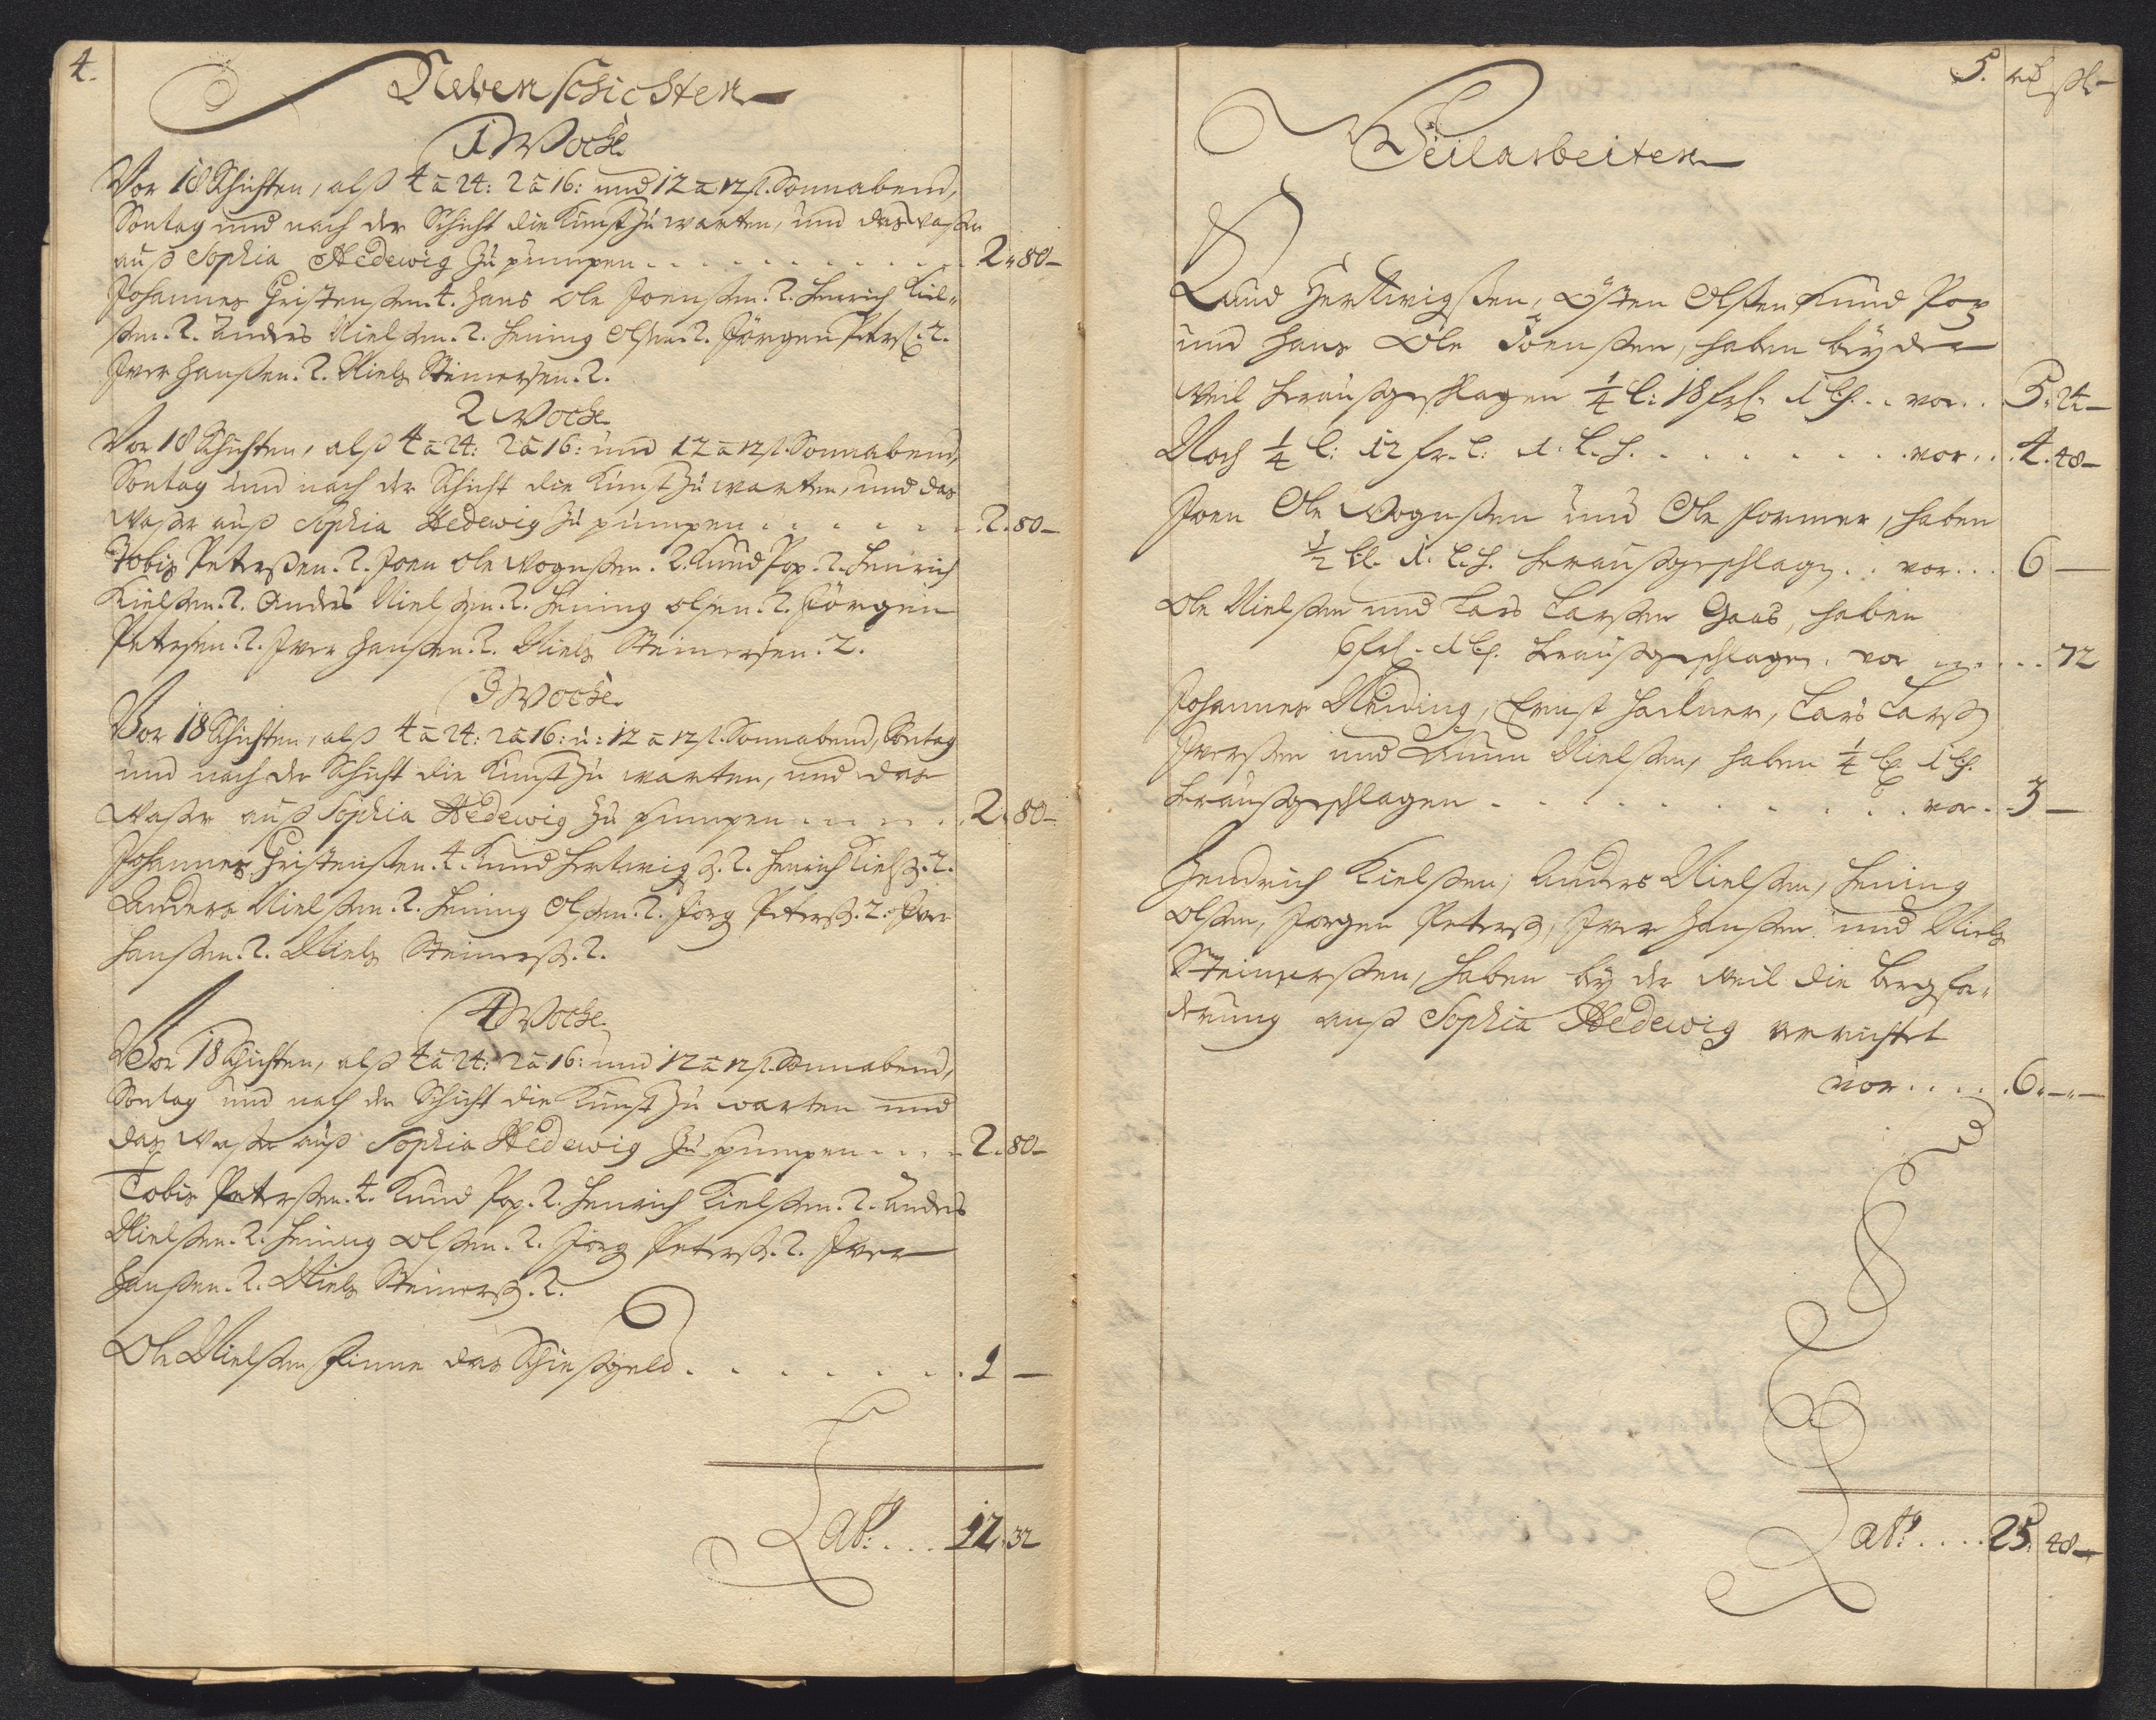 4.
Nebenschichten
1 Woche
Vor 18 Schichten, alß 4 a 24: 2 a 16: und 12 a 12 ß. Sonnabend,
Sontag und nach der Schicht die Kunst zu warten, und das Waßer
auß Sophia Hedewig zu pumpen . . . 2 " 80 –
Johannes Christenßen. 4. Hans Ole Joenßen. 2. Henrich Kiel-
ßen. 2. Anders Nielßen. 2. Hening Olßen. 2. Jörgen Peterß. 2.
Iver Hanßen. 2. Niels Steinerßen. 2.
2 Woche
Vor 18 Schichten, alß 4 a 24: 2 a 16: und 12 a 12 ß. Sonnabend,
Sontag und nach der Schicht die Kunst zu warten, und das
Waßer auß Sophia Hedewig zu pumpen . . . 2. 80 –
Tobis Peterßen. 2. Joen Ole Wognßen. 2. Knud Pop. 2. Henrich
Kielßen. 2. Anders Nielßen. 2. Hening Olßen. 2. Jörgen
Peterßen. 2. Iver Hanßen. 2. Niels Steinerßen. 2.
3 Woche
Vor 18 Schichten, alß 4 a 24: 2 a 16: u: 12 a 12 ß. Sonnabend, Sontag
und nach der Schicht die Kunst zu warten, und das
Waßer auß Sophia Hedewig zu pumpen . . . 2. 80 –
Johannes Christenßen. 4. Knud Hertwigß. 2. Henrich Kielß. 2.
Anders Nielßen. 2. Hening Olßen. 2. Jörg Peterß. 2. Iver
Hanßen. 2. Niels Steinerß. 2.
4 Woche
Vor 18 Schichten, alß 4 a 24: 2 a 16: und 12 a 12 ß. Sonnabend,
Sontag und nach der Schicht die Kunst zu warten und
das Waßer auß Sophia Hedewig zu pumpen . . . 2. 80 –
Tobis Peterßen. 4. Knud Pop. 2. Henrich Kielßen. 2. Anders
Nielßen. 2. Hening Olßen. 2. Jörg Peterß. 2. Iver
Hanßen. 2. Niels Steinerß. 2.
Ole Nielßen Finne das Schießgeld . . . 1 –
Lat: . . . 12. 32
5. rd ßl
Weilarbeiten
Knud Hertwigßen, Östen Olßen Knud Pop
und Hans Ole Joenßen, haben bey der
Weil heraußgeschlagen ¼ l: 18 frl. 1 lh. . vor . . 5. 24 –
Noch ¼ l: 12 fr. l: 1. l. h. . . . vor . . 4. 48 –
Joen Ole Wognßen und Ole Former, haben
½ l. 1. l. h. heraußgeschlagen . . vor . . . 6 –
Ole Nielßen und Lars Larßen Gaas, haben
6 frl. 1 lh. heraußgeschlagen. vor . . . 72
Johannes Meding, Ernst Hackner, Lars Larß
Iverßen und Nielßen, haben ¼ l. 1 lh.
heraußgeschlagen . . . vor . . 3 –
Hendrich Kielßen, Anders Nielßen, Hening
Olßen, Jorgen Peterß, Iver Hanßen und Niels
Steinerßen, haben bey der Weil die Bergfo-
derung auß Sophia Hedewig verrichtet
vor . . . . 6. – " –
Lat: . . . . 25. 48 –